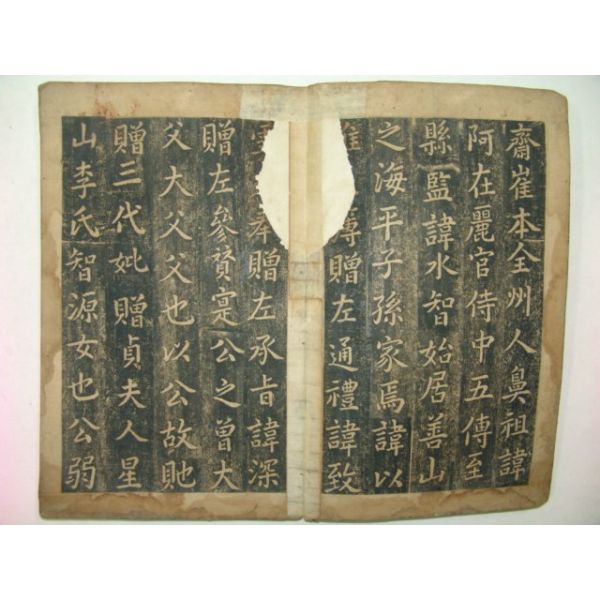 齋崔本全州人鼻祖諱
阿在麗官侍中五傳至
縣監諱水智始居善山
之海平子孫家焉諱以
贈左通禮諱致
奉贈左承旨諱深
贈左參贊寔公之曾大
父大父父也以公故貤
贈三代妣贈貞夫人星
山李氏智源女也公弱